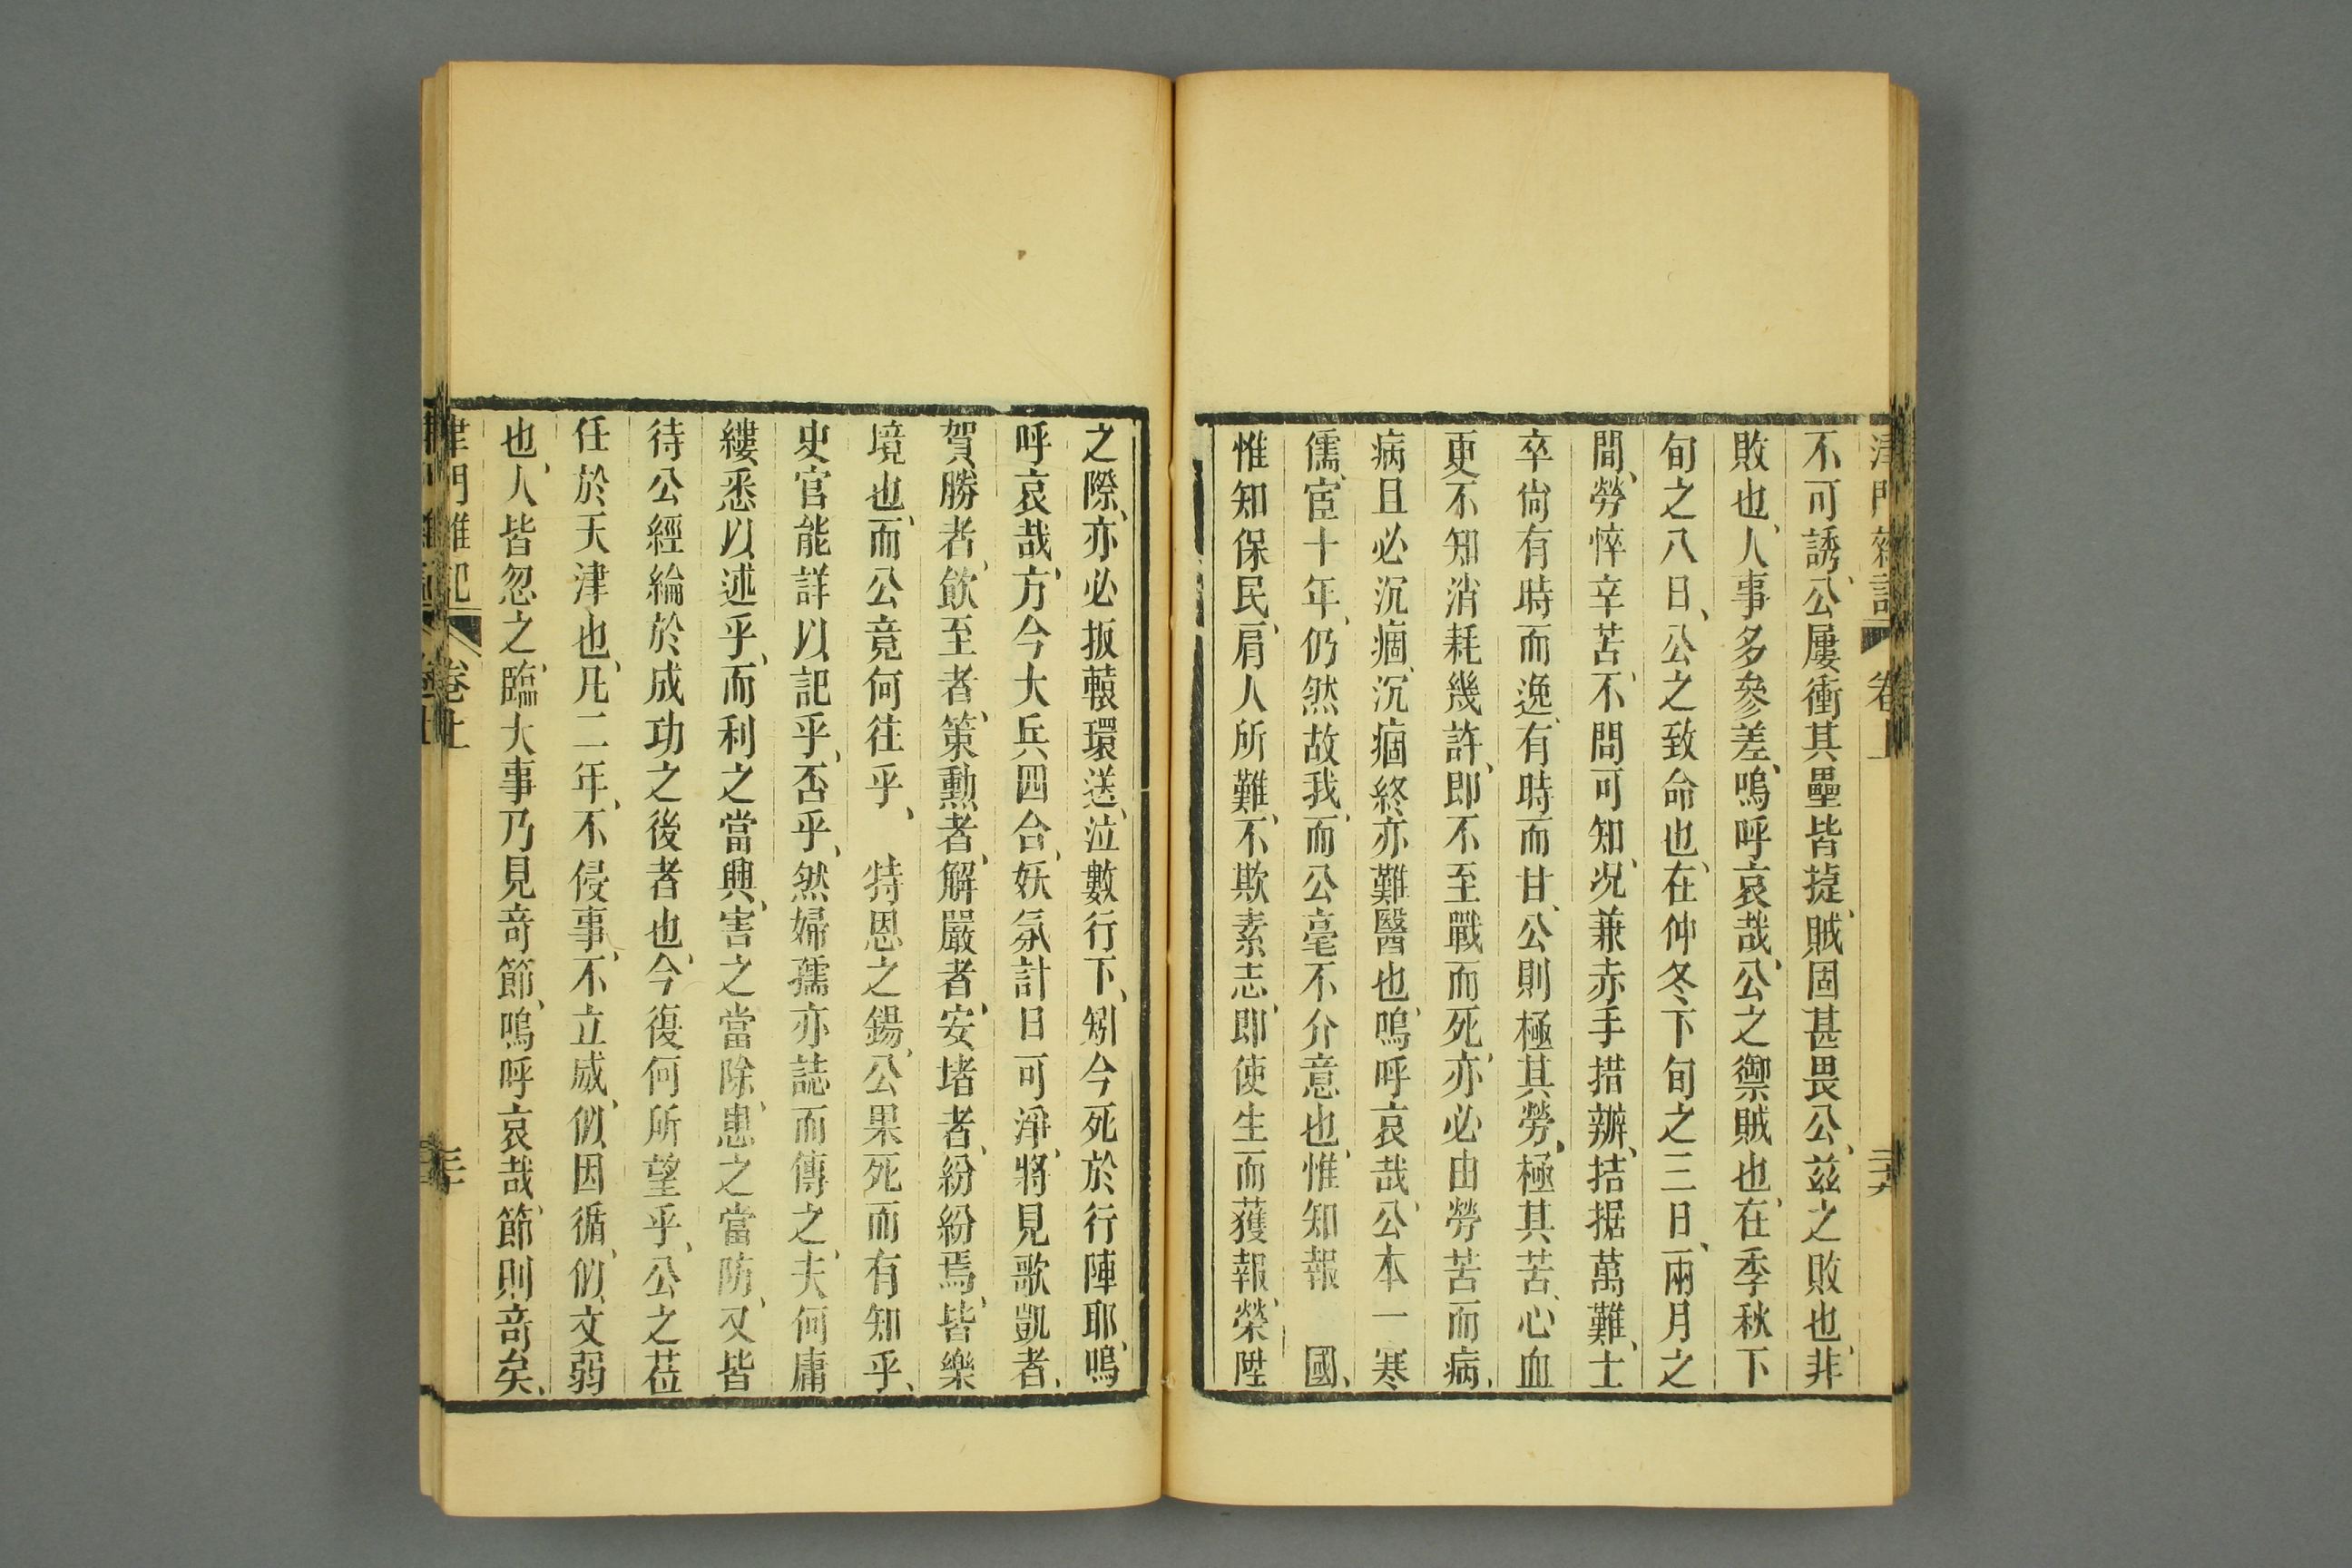 津門雜記 卷上
不可誘、公屢衝其壘皆捷、賊固甚畏公、茲之敗也、非
敗也、人事多參差、嗚呼哀哉、公之禦賊也、在季秋下
旬之八日、公之致命也、在仲冬下旬之三日、兩月之
間、勞悴辛苦、不問可知、况兼赤手措辦、拮据萬難、士
卒尙有時而逸、有時而甘、公則極其勞、極其苦、心血
更不知消耗幾許、即不至戰而死、亦必由勞苦而病、
病且必沉痼、沉痼終亦難醫也、嗚呼哀哉、公本一寒
儒、宦十年、仍然故我、而公毫不介意也、惟知報 國、
惟知保民、肩人所難、不欺素志、即使生而獲報、榮陞
之際、亦必扳轅環送、泣數行下、矧今死於行陣耶、嗚
呼哀哉、方今大兵四合、妖氛計日可淨、將見歌凱者、
賀勝者、飲至者、策勳者、解嚴者、安堵者、紛紛焉、皆樂
境也、而公竟何往乎、 特恩之錫、公果死而有知乎、
史官能詳以記乎、否乎、然婦孺亦誌而傳之、夫何庸
縷悉以述乎、而利之當興、害之當除、患之當防、又皆
待公經綸於成功之後者也、今復何所望乎、公之莅
任於天津也、凡二年、不侵事、不立威、似因循、似文弱
也、人皆忽之、臨大事乃見奇節、嗚呼哀哉、節則奇矣、
津門雜記 卷上